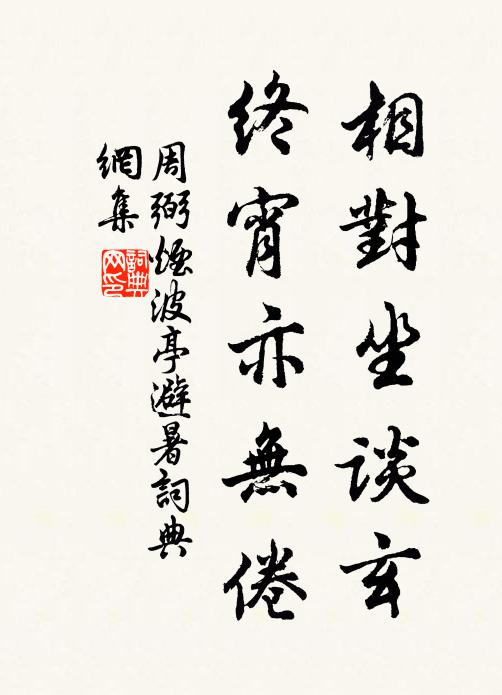 相對坐談玄
終宵亦無倦
周弼煙波亭避暑詞典
網集
詞典網印